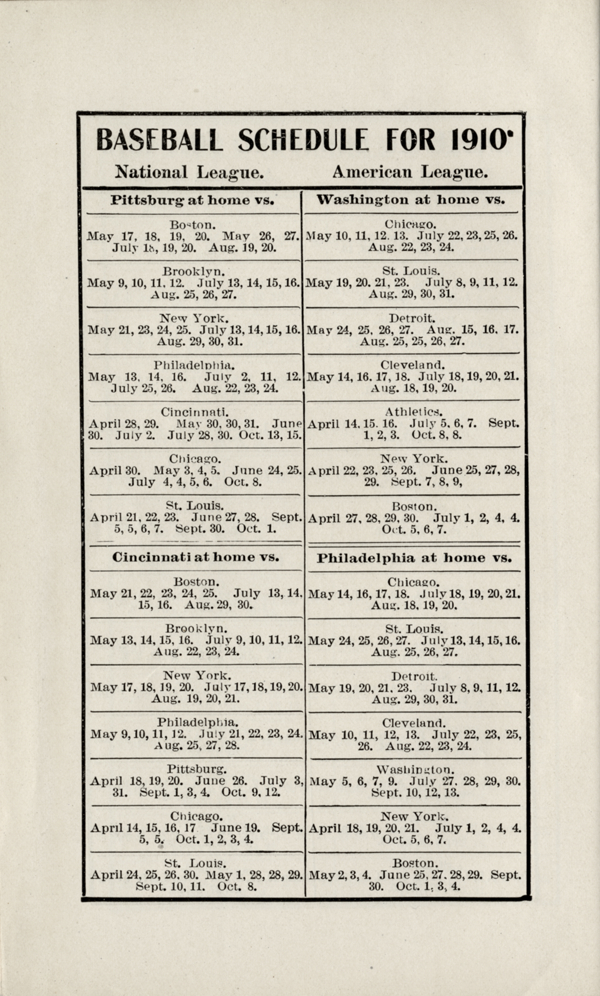 BASEBALL SCHEDULE FOR 1910
National League.
American League.
Pittsburg at home vs.
Boston.
May 17, 18, 19, 20. May 26, 27.
July 18, 19, 20. Aug. 19, 20.
Brooklyn.
May 9, 10, 11, 12. July 13, 14, 15, 16.
Aug. 25, 26, 27.
New York.
May 21, 23, 24, 25. July 13, 14, 15, 16.
Aug. 29, 30, 31.
Philadelphia.
May 13, 14, 16. July 2, 11, 12.
July 25, 26. Aug. 22, 23, 24.
Cincinnati.
April 28, 29. May 30, 30, 31. June
30. July 2. July 28, 30. Oct. 13, 15.
Chicago.
April 30. May 3, 4, 5. June 24, 25.
July 4, 4, 5, 6. Oct. 8.
St. Louis.
April 21, 22, 23. June 27, 28. Sept.
5, 5, 6, 7. Sept. 30. Oct. 1.
Cincinnati at home vs.
Boston.
May 21, 22, 23, 24, 25. July 13, 14,
15, 16. Aug. 29, 30.
Brooklyn.
May 13, 14, 15, 16. July 9, 10, 11, 12.
Aug. 22, 23, 24.
New York.
May 17, 18, 19, 20. July 17, 18, 19, 20.
Aug. 19, 20, 21.
Philadelphia.
May 9, 10, 11, 12. July 21, 22, 23, 24.
Aug. 25, 27, 28.
Pittsburg.
April 18, 19, 20. June 26. July 3,
31. Sept. 1, 3, 4. Oct. 9, 12.
Chicago.
April 14, 15, 16, 17 June 19. Sept.
5, 5. Oct. 1, 2, 3, 4.
St. Louis.
April 24, 25, 26, 30. May 1, 28, 28, 29.
Sept. 10, 11. Oct. 8.
Washington at home vs.
Chicago.
May 10, 11, 12, 13. July 22, 23, 25, 26.
Aug. 22, 23, 24.
St. Louis.
May 19, 20. 21, 23. July 8, 9, 11, 12.
Aug. 29, 30, 31.
Detroit.
May 24, 25, 26, 27. Aug. 15, 16, 17.
Aug. 25, 25, 26, 27.
Cleveland.
May 14, 16, 17, 18. July 18, 19, 20, 21.
Aug. 18, 19, 20.
Athletics.
April 14, 15. 16. July 5, 6, 7. Sept.
1, 2, 3. Oct. 8, 8.
New York.
April 22, 23, 25, 26. June 25, 27, 28,
29. Sept. 7, 8, 9,
Boston.
April 27, 28, 29, 30. July 1, 2, 4, 4.
Oct. 5, 6, 7.
Philadelphia at home vs.
Chicago.
May 14, 16, 17, 18. July 18, 19, 20, 21.
Aug. 18, 19, 20.
St. Louis.
May 24, 25, 26, 27. July 13, 14, 15, 16.
Aug. 25, 26, 27.
Detroit.
May 19, 20, 21, 23. July 8, 9, 11, 12.
Aug. 29, 30, 31.
Cleveland.
May 10, 11, 12, 13. July 22, 23, 25,
26. Aug. 22, 23, 24.
Washington.
May 5, 6, 7, 9. July 27, 28, 29, 30.
Sept. 10, 12, 13.
New York.
April 18, 19, 20, 21. July 1, 2, 4, 4.
Oct. 5, 6, 7.
Boston.
May 2, 3, 4. June 25, 27, 28, 29. Sept.
30. Oct. 1, 3, 4.